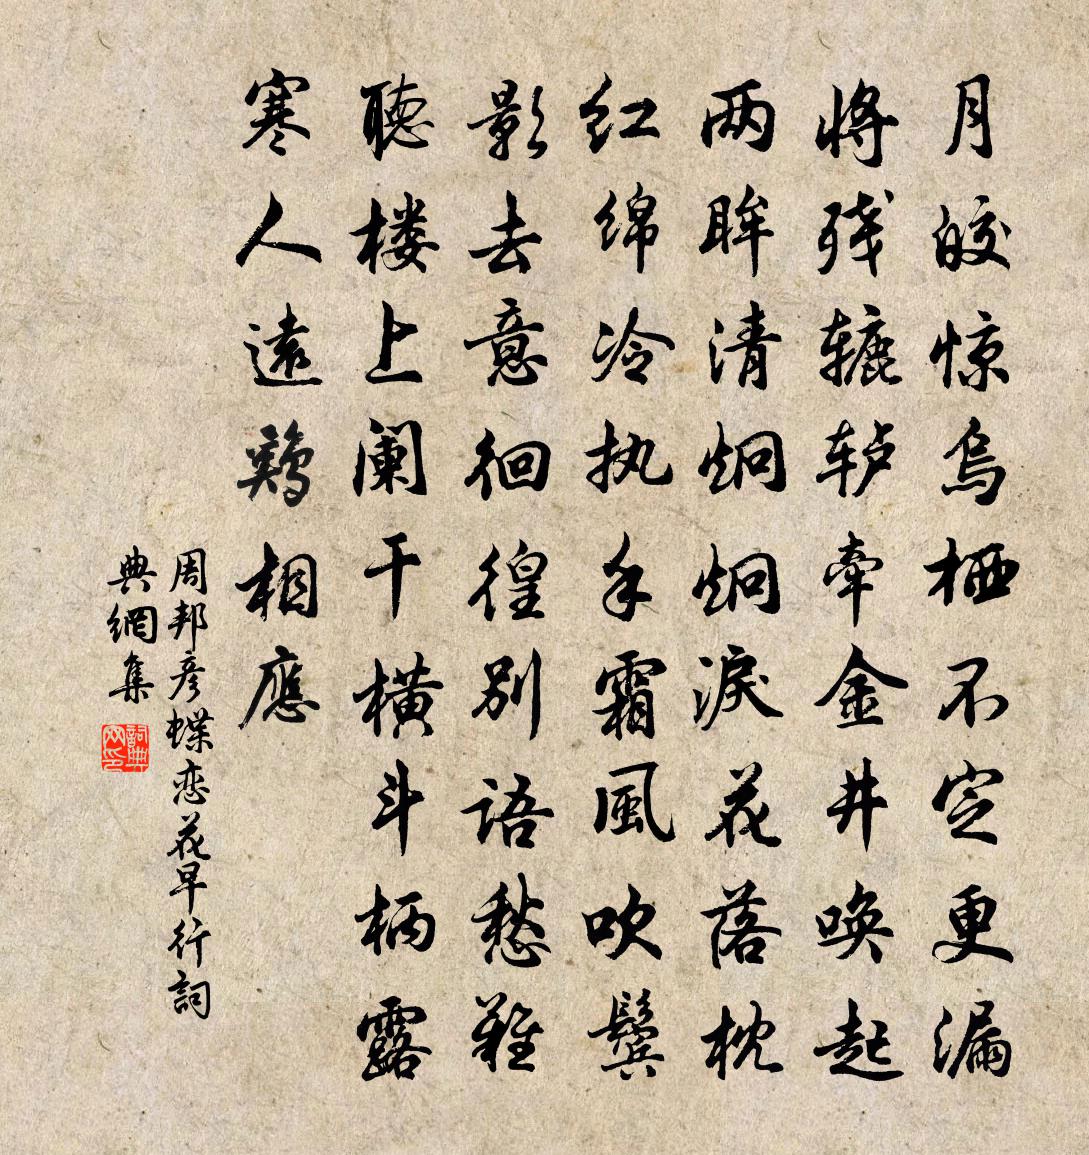 月皎惊乌栖不定更漏
将残辘轳牵金井唤起
两眸清炯炯淚花落枕
红绵冷执手霜風吹鬓
影去意徊徨别語愁難
聽楼上阑干横斗柄露
寒人遠鷄相應
周邦彦蝶恋花早行詞
典網集
詞典网印